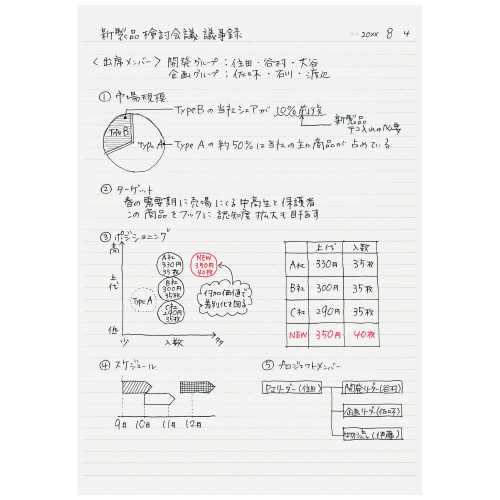 新製品検討会議 議事録
20XX 8 4
〈出席メンバー〉 開発グループ：住田・谷村・大谷
企画グループ：佐々木・石川・渡辺
① 市場規模
Type Bの当社シェアが 10%前後
新製品
テコ入れの必要
Type B
Type A
Type Aの約50%は当社の主力商品が占めている
② ターゲット
春の需要期に売場にくる中高生と保護者
この商品をフックに認知度拡大も目指す
③ ポジショニング
高
上代
低
少 入数 多
A社 330円 35枚
B社 300円 35枚
C社 290円 35枚
Type A
NEW 350円 40枚
付加価値で
差別化を図る
上代 入数
A社 330円 35枚
B社 300円 35枚
C社 290円 35枚
NEW 350円 40枚
④ スケジュール
9月 10月 11月 12月
⑤ プロジェクトメンバー
リーダー(住田)
開発リーダー(谷村)
企画リーダー(佐々木)
(伊藤)